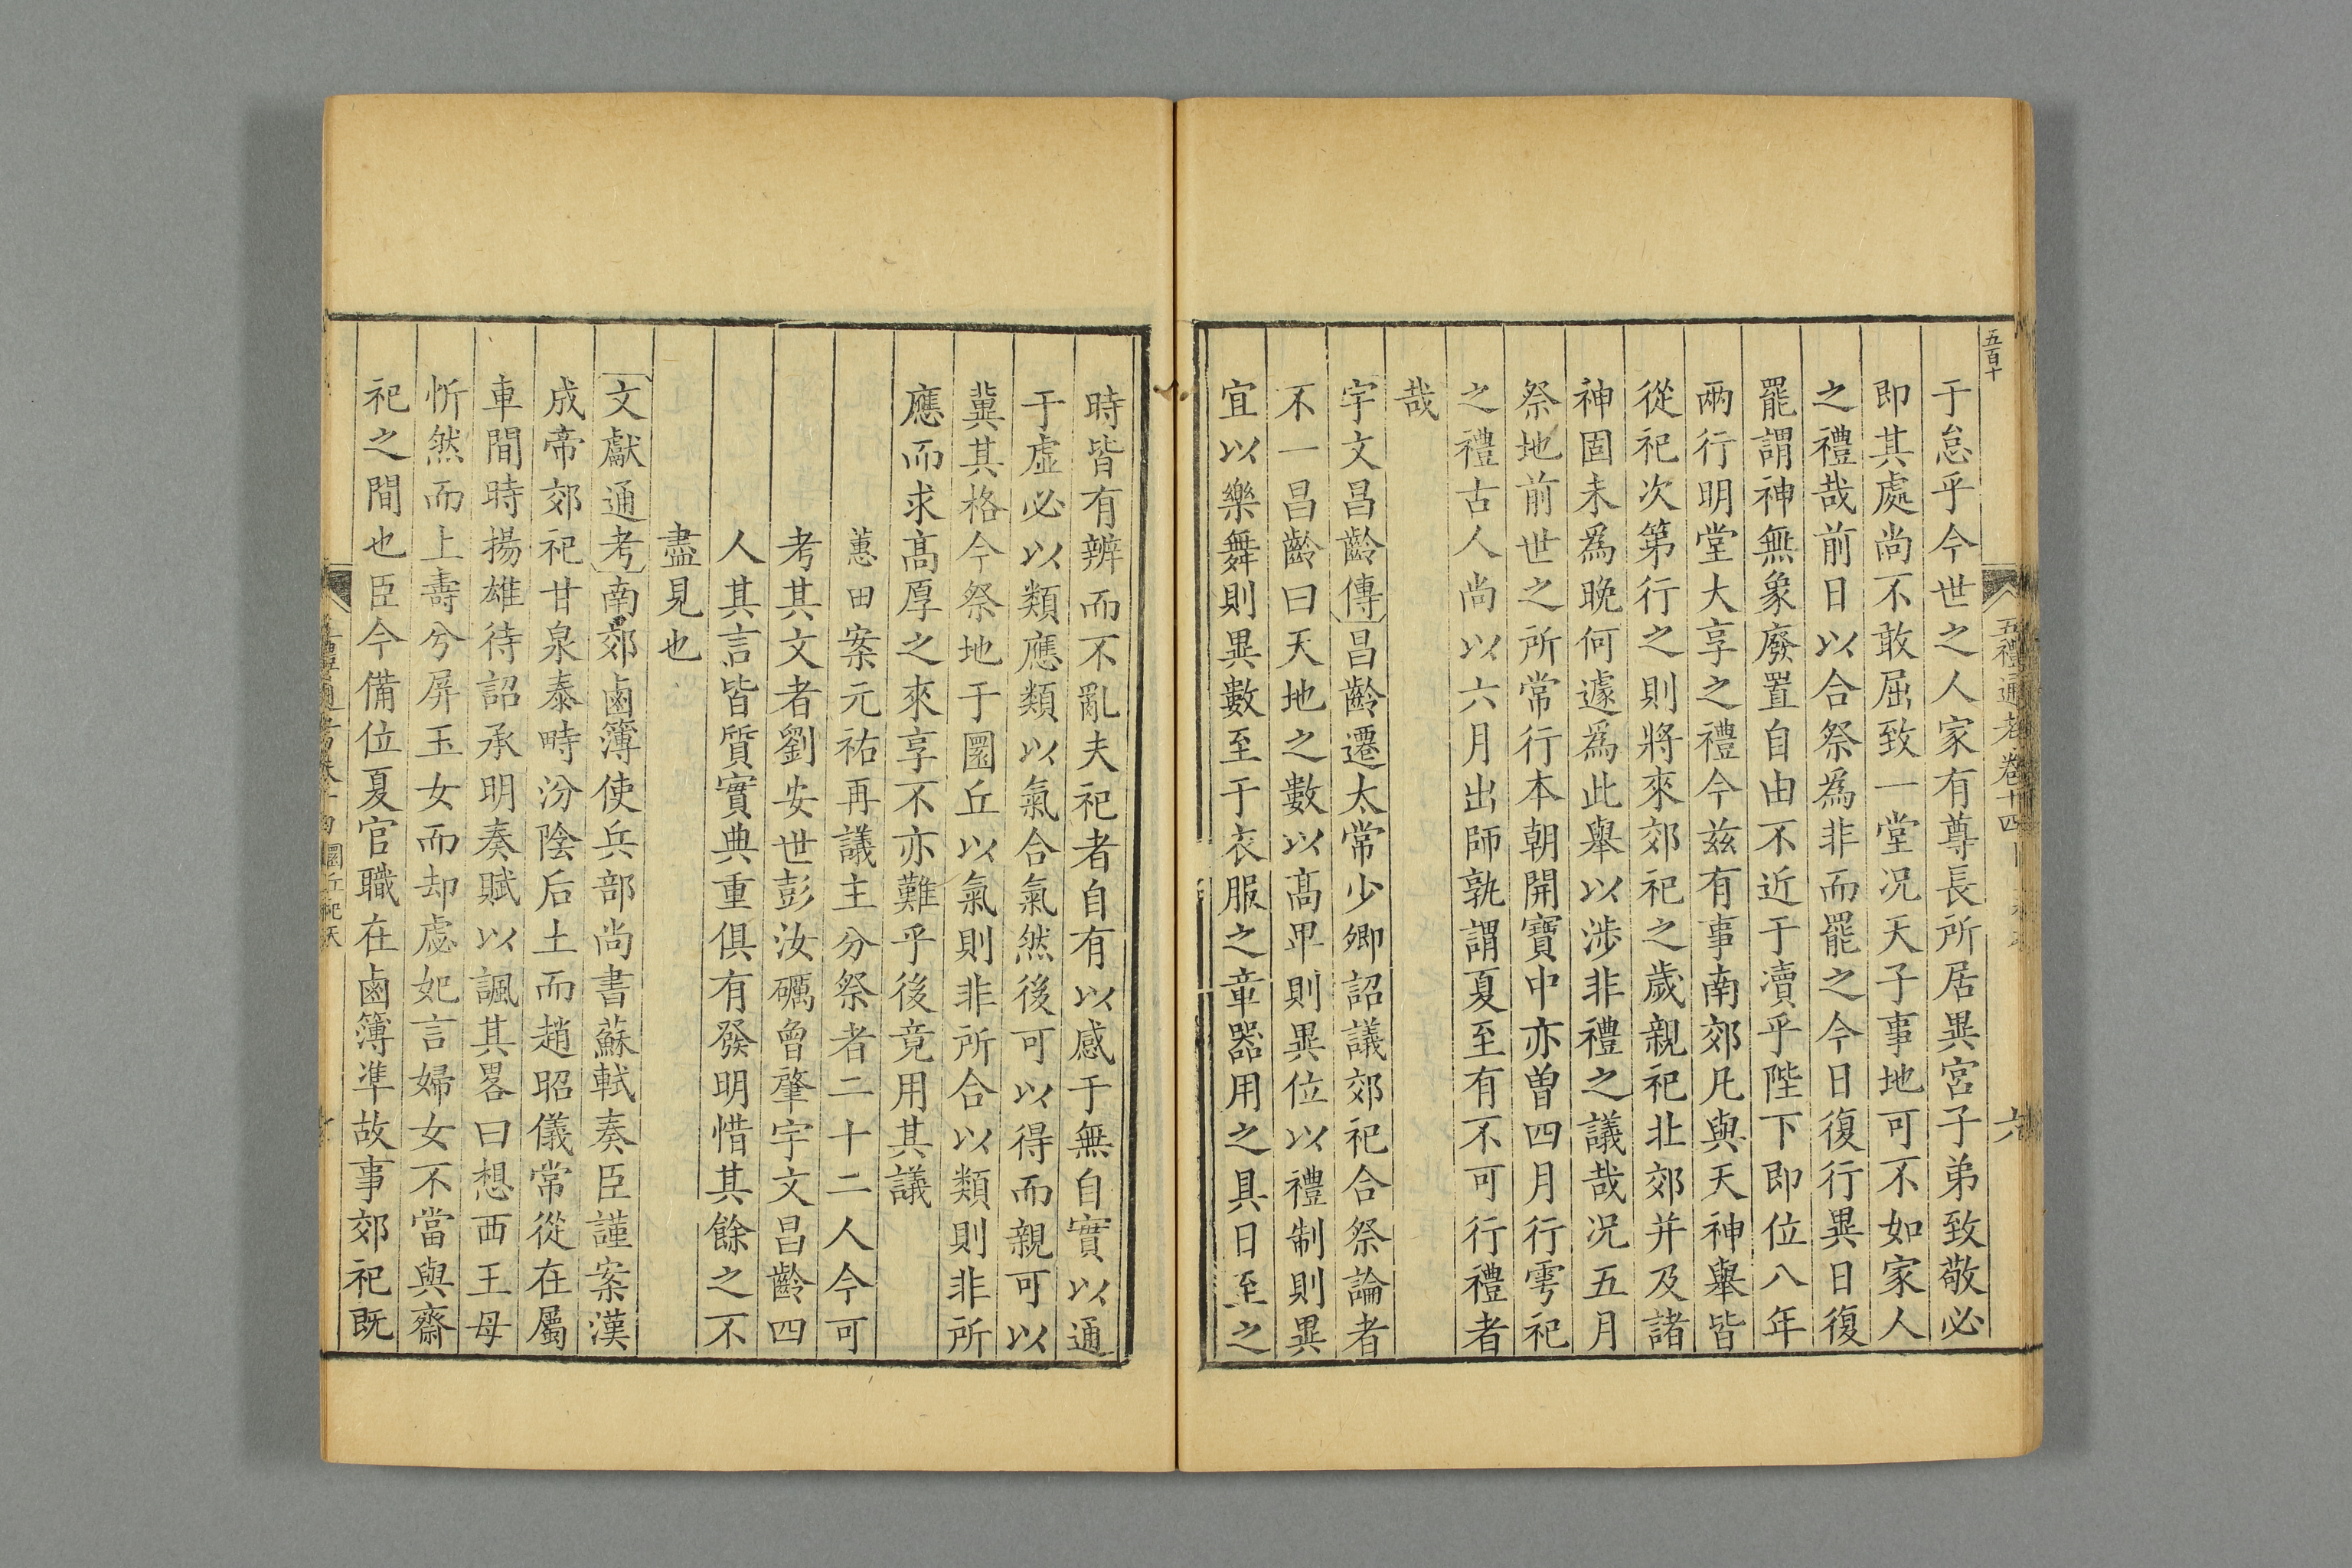 五百十
五禮通考卷十四
六
于怠乎今世之人家有尊長所居異宮子弟致敬必
即其處尚不敢屈致一堂况天子事地可不如家人
之禮哉前日以合祭爲非而罷之今日復行異日復
罷謂神無象廢置自由不近于瀆乎陛下即位八年
兩行明堂大享之禮今兹有事南郊凡與天神舉皆
從祀次第行之則將來郊祀之歲親祀北郊并及諸
神固未爲晚何遽爲此舉以涉非禮之議哉况五月
祭地前世之所常行本朝開寶中亦曽四月行雩祀
之禮古人尚以六月出師孰謂夏至有不可行禮者
哉
宇文昌齡傳昌齡遷太常少卿詔議郊祀合祭論者
不一昌齡曰天地之數以髙卑則異位以禮制則異
宜以樂舞則異數至于衣服之章器用之具日至之
時皆有辨而不亂夫祀者自有以感于無自實以通
于虛必以類應類以氣合氣然後可以得而親可以
冀其格今祭地于圜丘以氣則非所合以類則非所
應而求髙厚之來享不亦難乎後竟用其議
蕙田案元祐再議主分祭者二十二人今可
考其文者劉安世彭汝礪曾肇宇文昌齡四
人其言皆質實典重俱有發明惜其餘之不
盡見也
文獻通考南郊鹵簿使兵部尚書蘇軾奏臣謹案漢
成帝郊祀甘泉泰畤汾陰后土而趙昭儀常從在屬
車間時揚雄待詔承明奏賦以諷其畧曰想西王母
忻然而上壽兮屏玉女而却虙妃言婦女不當與齋
祀之間也臣今備位夏官職在鹵簿凖故事郊祀既
圜丘祀天